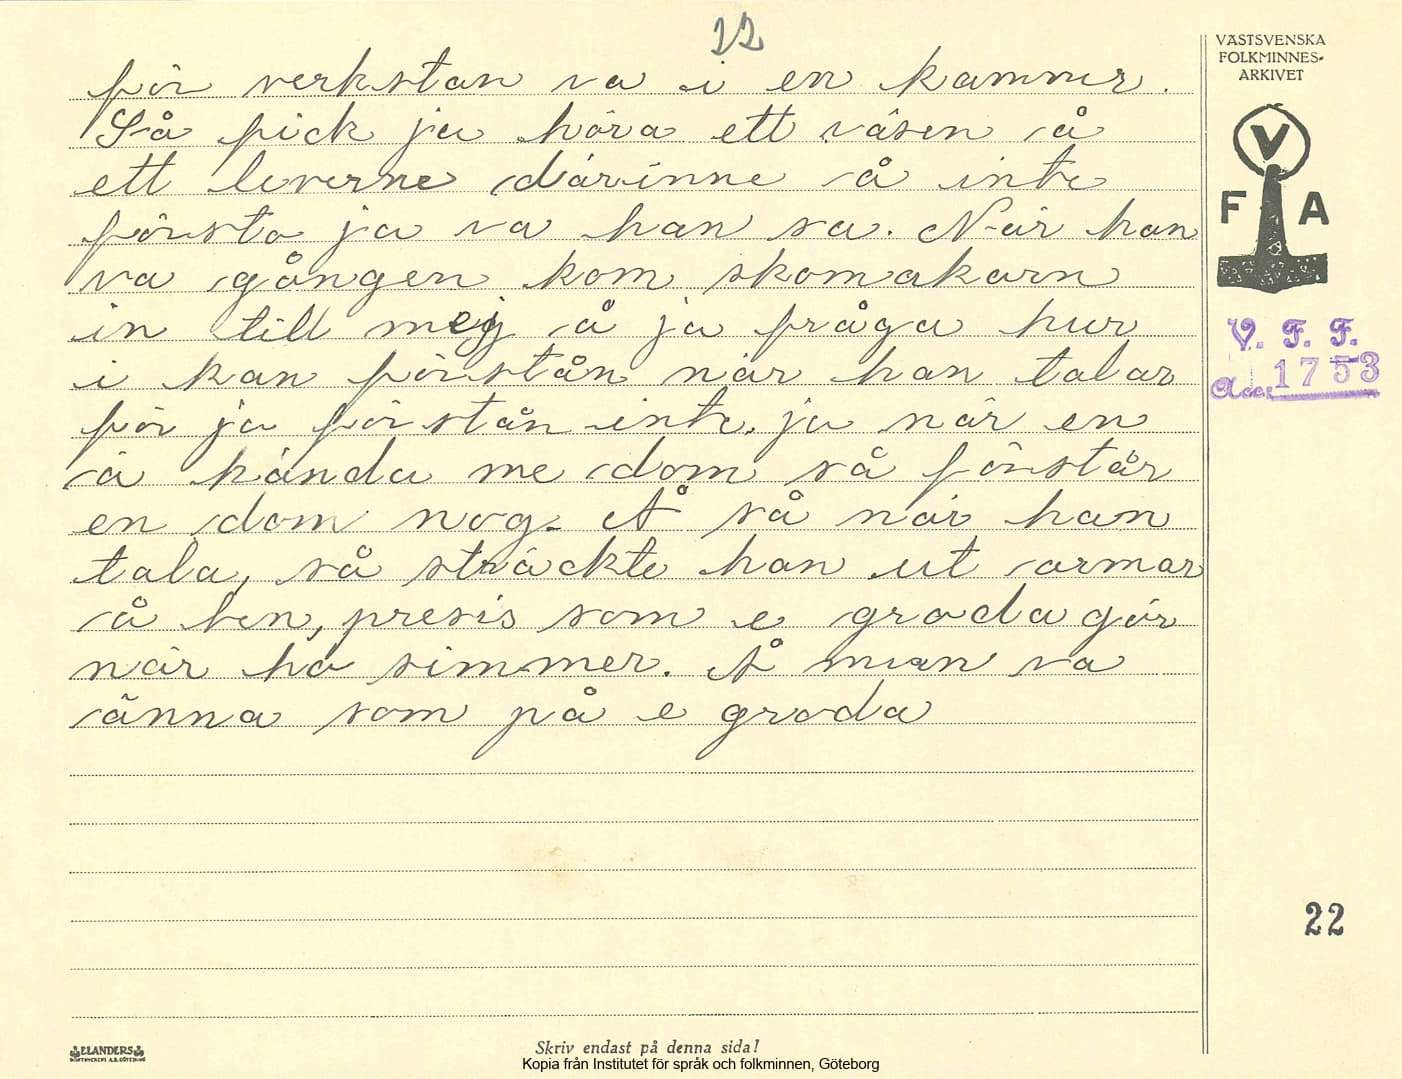 22
för verkstan va i en kammer.
Så fick ja höra ett väsen å
ett leverne därinne å inte
första ja va han sa. När han
va gången kom skomakarn
in till mej å ja fråga hur
i kan förstån när han talar
för ja förstån inte. ja när en
ä kända me dom så förstår
en dom nog. Å så när han
tala, så sträckte han ut armar
å ben, presis som e groda gör
när ho simmer. Å mun va
änna som på e groda
VÄSTSVENSKA
FOLKMINNES-
ARKIVET
V
F A
V. F. F.
Acc: 1753
22
ELANDERS
Skriv endast på denna sida!
Kopia från Institutet för språk och folkminnen, Göteborg